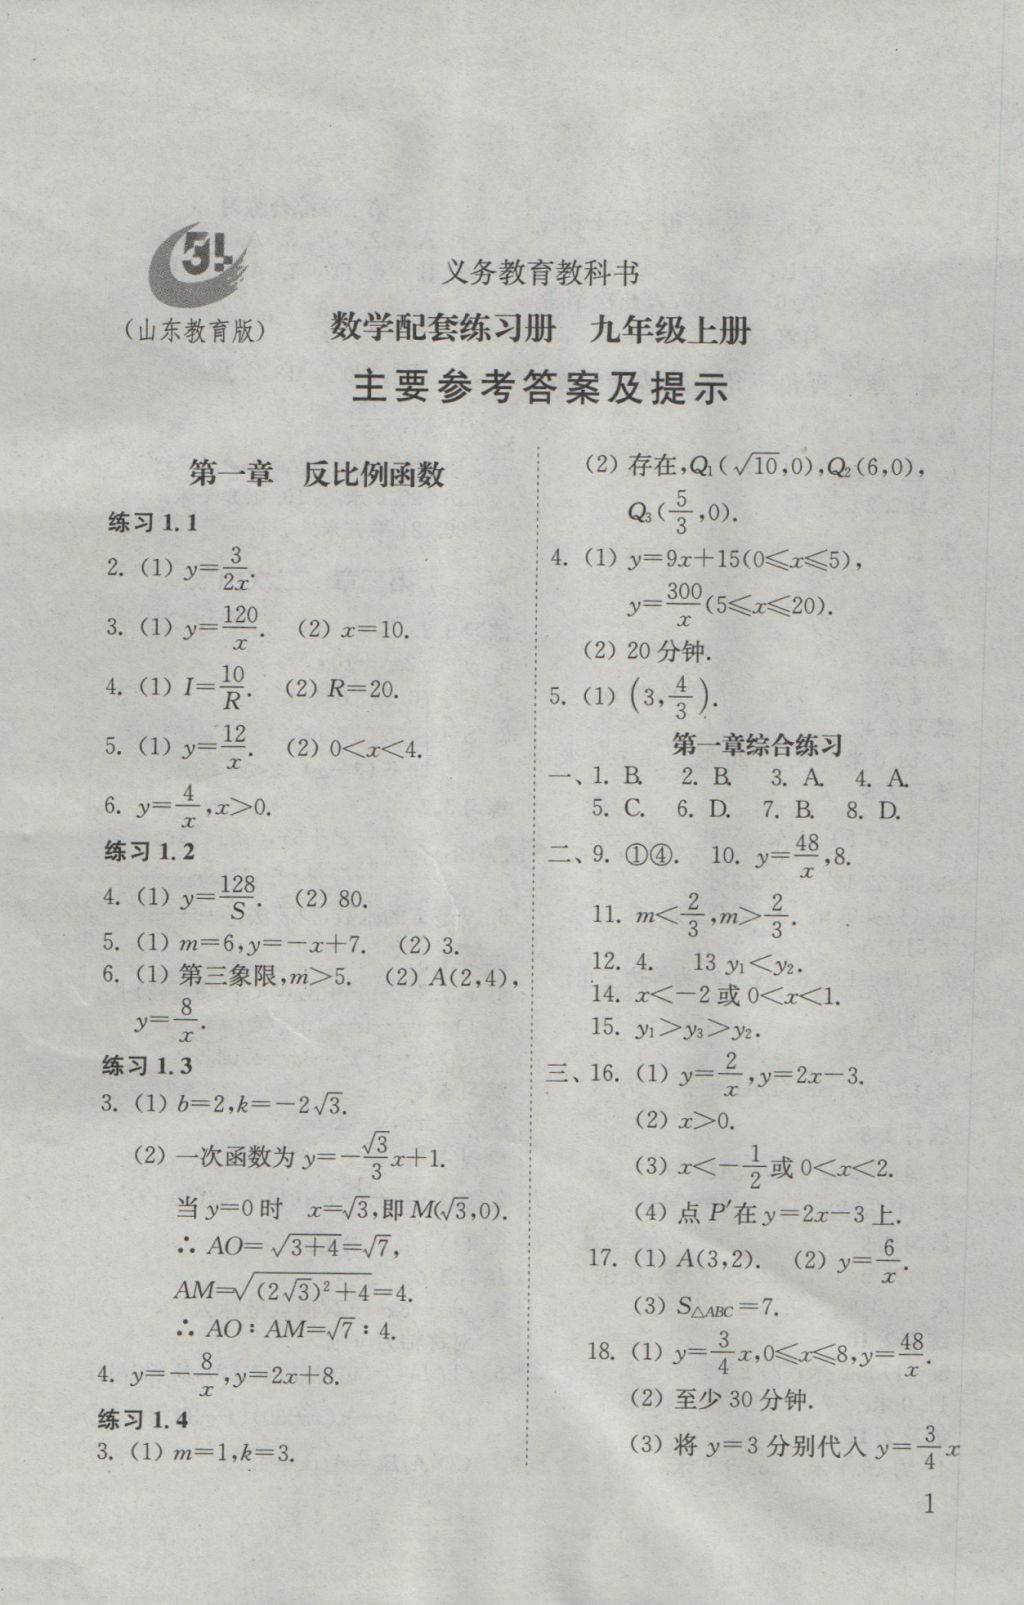 5!
(山东教育版)
义务教育教科书
数学配套练习册 九年级上册
主要参考答案及提示
第一章 反比例函数
练习 1.1
2. (1) y=3/2x.
3. (1) y=120/x. (2) x=10.
4. (1) I=10/R. (2) R=20.
5. (1) y=12/x. (2) 0<x<4.
6. y=4/x,x>0.
练习 1.2
4. (1) y=128/S. (2) 80.
5. (1) m=6,y=-x+7. (2) 3.
6. (1) 第三象限,m>5. (2) A(2,4),
y=8/x.
练习 1.3
3. (1) b=2,k=-2√3.
(2) 一次函数为 y=-√3/3 x+1.
当 y=0 时 x=√3,即 M(√3,0).
∴ AO=√(3+4)=√7,
AM=√((2√3)²+4)=4.
∴ AO∶AM=√7∶4.
4. y=-8/x,y=2x+8.
练习 1.4
3. (1) m=1,k=3.
(2) 存在,Q₁(√10,0),Q₂(6,0),
Q₃(5/3,0).
4. (1) y=9x+15(0≤x≤5),
y=300/x(5≤x≤20).
(2) 20 分钟.
5. (1) (3,4/3).
第一章综合练习
一、1. B. 2. B. 3. A. 4. A.
5. C. 6. D. 7. B. 8. D.
二、9. ①④. 10. y=48/x,8.
11. m<2/3,m>2/3.
12. 4. 13 y₁<y₂.
14. x<-2 或 0<x<1.
15. y₁>y₃>y₂.
三、16. (1) y=2/x,y=2x-3.
(2) x>0.
(3) x<-1/2 或 0<x<2.
(4) 点 P′在 y=2x-3 上.
17. (1) A(3,2). (2) y=6/x.
(3) S△ABC=7.
18. (1) y=3/4 x,0≤x≤8,y=48/x.
(2) 至少 30 分钟.
(3) 将 y=3 分别代入 y=3/4 x
1